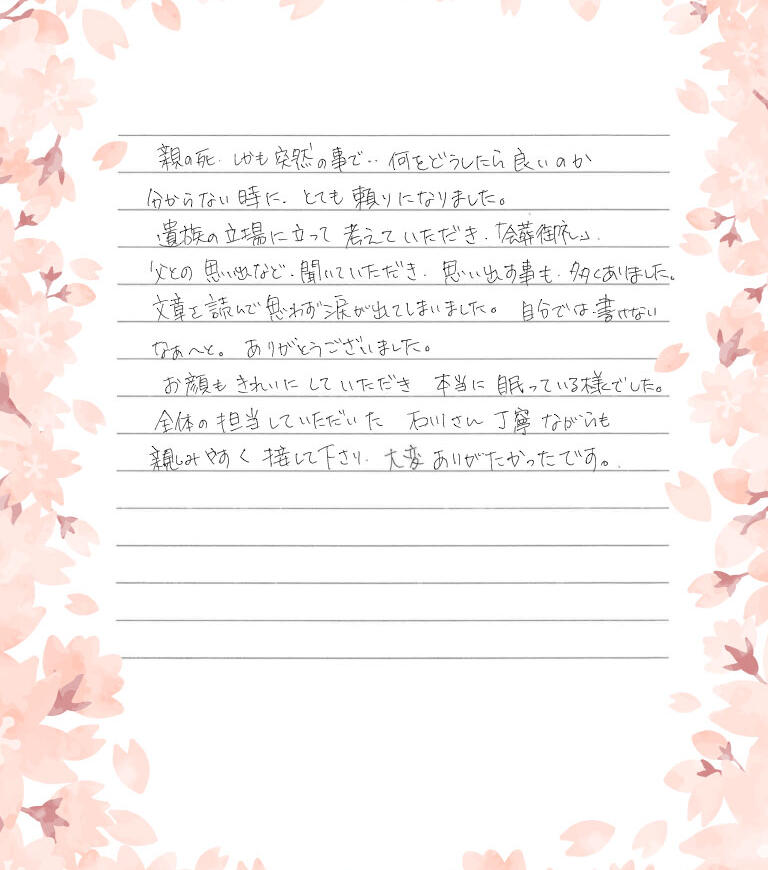 親の死、しかも突然の事で‥何をどうしたら良いのか
分からない時に、とても頼りになりました。
遺族の立場に立って考えていただき、「会葬御礼」、
父との思い出など、聞いていただき、思い出す事も、多くありました。
文章を読んで思わず涙が出てしまいました。自分では、書けない
なぁ〜と。ありがとうございました。
お顔もきれいにしていただき 本当に眠っている様でした。
全体の担当していただいた 石川さん丁寧ながらも
親しみやすく接して下さり、大変ありがたかったです。